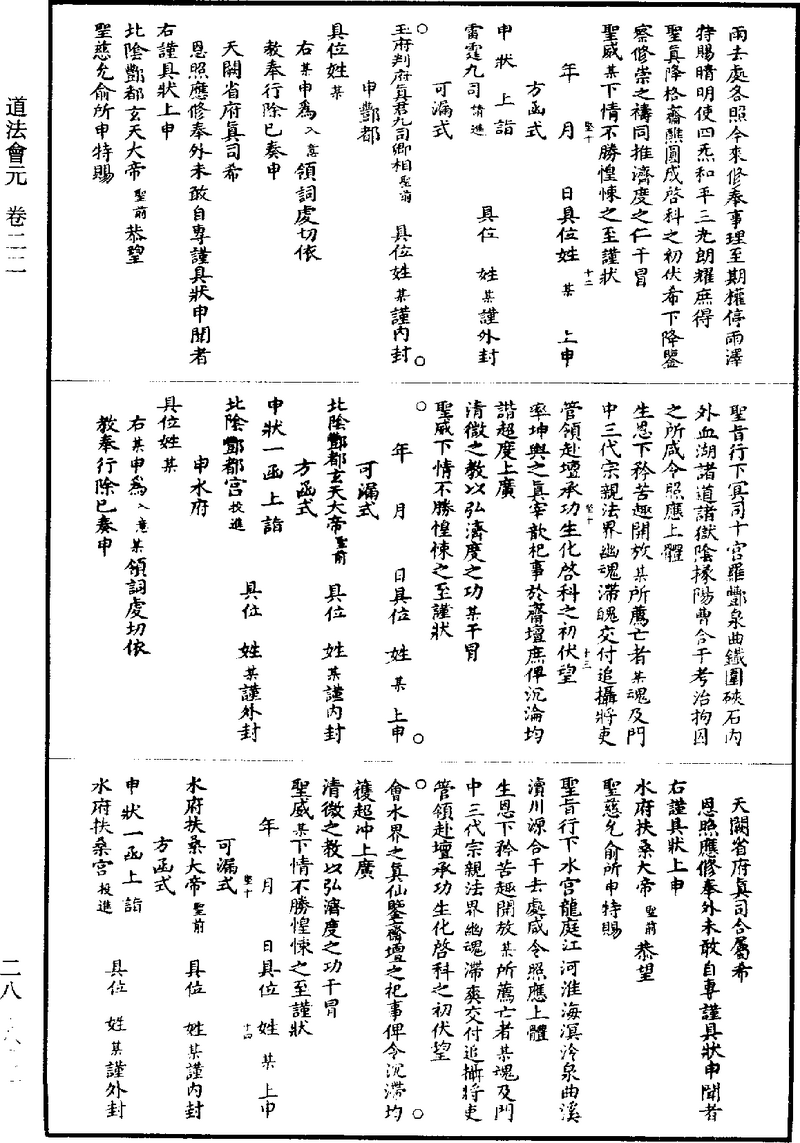 道法會元　卷二二
雨去處各照今來修奉事理至期權停雨澤
特賜晴明使四炁和平三光朗耀庶得
聖真降格齋醮圓成啓科之初伏希下降鑒
察修崇之禱同推濟度之仁干冒
聖威某下情不勝惶悚之至謹狀
年　月　日具位姓　某　上申
方函式
申狀上詣　具位　姓　某謹外封
雷霆九司　請進
可漏式
玉府判府真君九司卿相聖前　具位姓　某謹内封
申酆都
具位姓　某
右某申為入意領詞處切依
教奉行除已奏申
天闕省府真司希
恩照應修奉外未敢自專謹具狀申聞者
右謹具狀上申
北陰酆都玄天大帝　聖前　恭望
聖慈允俞所申特賜
聖旨行下冥司十宮羅酆泉曲鐵圍硤石内
外血湖諸道諸獄陰掾陽曹合干考治拘囚
之所咸令照應上體
生恩下矜苦趣開放某所薦亡者某魂及門
中三代宗親法界幽魂滯魄交付追攝將吏
管領赴壇承功生化啓科之初伏望
率坤輿之真宰歆祀事於齋壇庶俾沉淪均
諧超度上廣
清微之教以弘濟度之功某干冒
聖威下情不勝惶悚之至謹狀
年　月　日具位　姓　某　上申
可漏式
北陰酆都玄天大帝聖前　具位　姓　某謹内封
方函式
申狀一函上詣　具位　姓　某謹外封
北陰酆都宮　投進
申水府
具位姓　某
右某申為入意某領詞處切依
教奉行除已奏申
天闕省府真司合屬希
恩照應修奉外未敢自專謹具狀申聞者
右謹具狀上申
水府扶桑大帝　聖前　恭望
聖慈允俞所申特賜
聖旨行下水宮龍庭江河淮海溟泠泉曲溪
瀆川源合干去處咸令照應上體
生恩下矜苦趣開放某所薦亡者某魂及門
中三代宗親法界幽魂滯爽交付追攝將吏
管領赴壇承功生化啓科之初伏望
會水界之真仙鑒齋壇之祀事俾令沉滯均
獲超冲上廣
清微之教以弘濟度之功干冒
聖威某下情不勝惶悚之至謹狀
年　月　日具位　姓　某　上申
可漏式
水府扶桑大帝　聖前　具位　姓　某謹内封
方函式
申狀一函上詣　具位　姓　某謹外封
水府扶桑宮　投進
二八